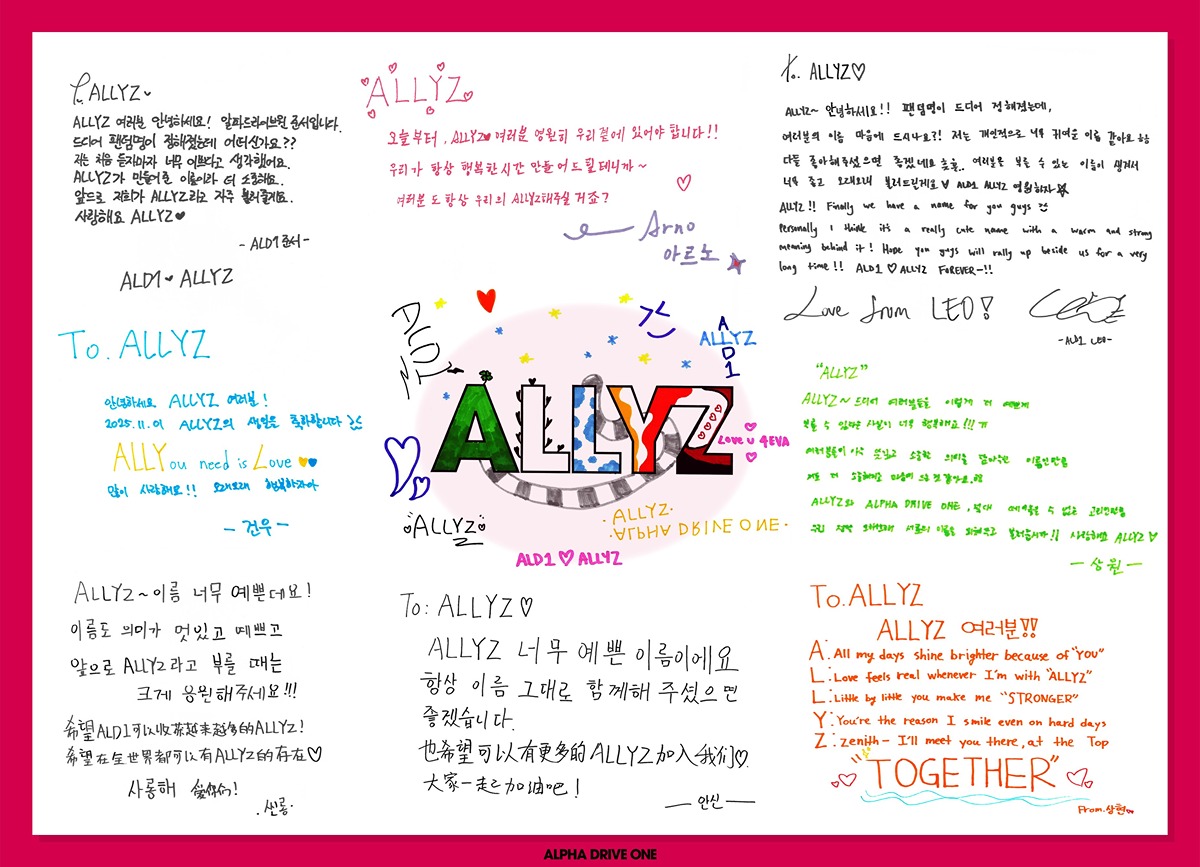 To. ALLYZ
ALLYZ 여러분 안녕하세요! 알파드라이브원 준서입니다.
드디어 팬덤명이 정해졌는데 어떠신가요??
저는 처음 듣자마자 너무 이쁘다고 생각했어요.
ALLYZ가 만들어준 이름이라 더 소중해요.
앞으로 저희가 ALLYZ라고 자주 불러줄게요.
사랑해요 ALLYZ♥
- ALD1 준서 -
ALD1 ♥ ALLYZ
ALLYZ
오늘부터, ALLYZ♥ 여러분 영원히 우리곁에 있어야 합니다!!
우리가 항상 행복한시간 만들어드릴테니까~
여러분도 항상 우리의 ALLYZ해주실 거죠?
Arno
아르노
To. ALLYZ♡
ALLYZ~ 안녕하세요!! 팬덤명이 드디어 정해졌는데,
여러분의 이름 마음에 드시나요?! 저는 개인적으로 너무 귀여운 이름 같아요 ㅎㅎ
다들 좋아해주셨으면 좋겠네요 여러분을 부를 수 있는 이름이 생겨서
너무 좋고 오래오래 불러드릴게요 ALD1 ALLYZ 영원하자
ALLYZ!! Finally we have a name for you guys
Personally I think it's a really cute name with a warm and strong
meaning behind it! Hope you guys will rally up beside us for a very
long time!! ALD1 ♡ ALLYZ FOREVER~!!
Love from LEO!
- ALD1 LEO -
To. ALLYZ
안녕하세요 ALLYZ 여러분!
2025.11.01 ALLYZ의 생일을 축하합니다
ALLYou need is Love
많이 사랑해요!! 오래오래 행복하자아
- 건우 -
ALD1
ALD1
ALLYZ
ALLYZ
Love u 4EVA
ALLYZ
ALLYZ
ALPHA DRIVE ONE
ALD1 ♡ ALLYZ
"ALLYZ"
ALLYZ~ 드디어 여러분들을 이렇게 더 예쁘게
부를 수 있다는 사실이 너무 행복해요!!! ㅠ
여러분들이 아주 뜻깊고 소중한 의미를 담아주신 이름인만큼
저도 더 소중하고 마음에
ALLYZ와 ALPHA DRIVE ONE, 절대 떼어놓을 수 없는 고리인만큼
우리 정말 오랫동안 서로의 이름을 외쳐주고 불러줍시다!! 사랑해요 ALLYZ♡
- 상원 -
ALLYZ~ 이름 너무 예쁜데요!
이름도 의미가 멋있고 예쁘고
앞으로 ALLYZ라고 부를 때는
크게 응원해주세요!!!
希望ALD1可以收获越来越多的ALLYZ!
希望在全世界都可以有ALLYZ的存在♡
사롱해 爱你们!
씬롱
To: ALLYZ♡
ALLYZ 너무 예쁜 이름이에요
항상 이름 그대로 함께해 주셨으면
좋겠습니다.
也希望可以有更多的ALLYZ加入我们♡
大家一起加油吧!
— 안신 —
To. ALLYZ
ALLYZ 여러분!!
A: All my days shine brighter because of "YOU"
L: Love feels real whenever I'm with "ALLYZ"
L: Little by little you make me "STRONGER"
Y: You're the reason I smile even on hard days
Z: Zenith- I'll meet you there, at the Top
"TOGETHER"
From. 상현
ALPHA DRIVE ONE